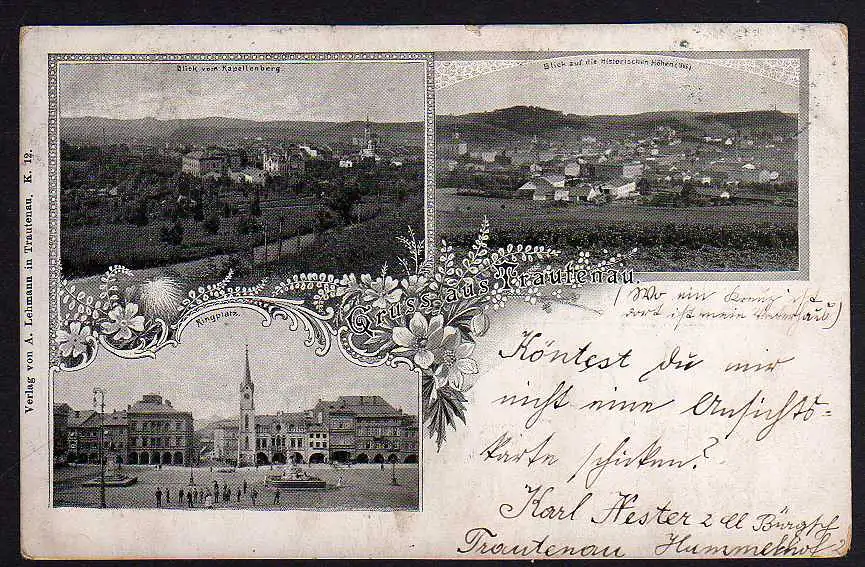 Blick vom Kapellenberg
Blick auf die historischen Höhen (1866)
Verlag von A. Lehmann in Trautenau. K. 12.
Gruss aus Trautenau.
(Wo ein Kreuz ist
dort ist mein
Ringplatz.
Köntest du mir
nicht eine Ansichts-
karte schicken?
Karl Nester 2
Trautenau Hummelhof 2